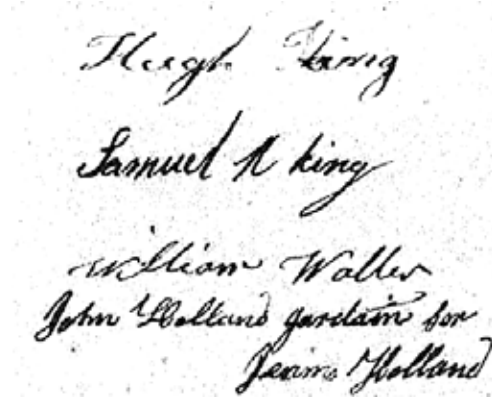 Hugh King
Samuel N king
William Waller
John Holland gardain for
Holland